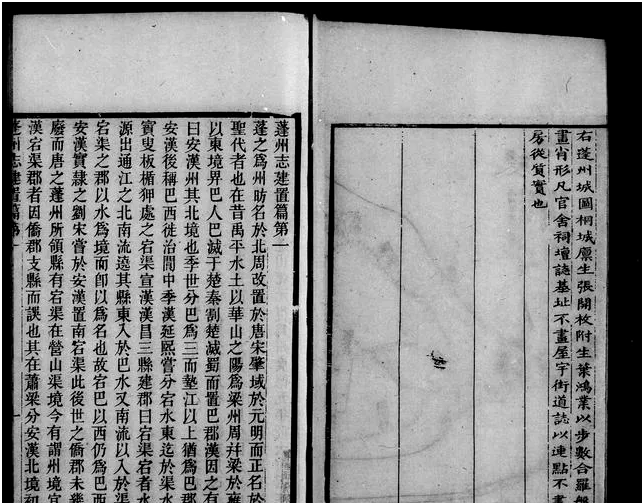 右蓬州城圖桐城廪生張開枚附生葉鴻業以步數合羅盤
畫肖形凡官舍祠壇誌基址不畫屋宇街道誌以連點不畫
房從質實也
蓬州志建置篇第一
蓬之爲州昉名於北周改置於唐宋肇域於元明而正名於
聖代者也在昔禹平水土以華山之陽爲梁州周并梁於雍
以東境界巴人巴滅于楚秦割楚滅蜀而置巴郡漢因之有
曰安漢州其北境也季世分巴爲三而墊江以上猶爲巴
安漢後稱巴西徙治閬中季漢延熙嘗分宕水東迄於渠
賨叟板楯狎處之宕渠宣漢漢昌三縣建郡曰宕渠宕渠者水
源出通江之北南流遶其縣東入於巴水又南流以入於渠
宕渠之郡以水爲境而卽以爲名也故宕巴以西仍爲巴西
安漢實隸之劉宋嘗於安漢置南宕渠此後世之僑郡未幾
廢而唐之蓬州所領縣有宕渠在營山渠境今有謂州境宜
漢宕渠郡者因僑郡支縣而誤也其在蕭梁分安漢北境初
蓬州志建置篇第一